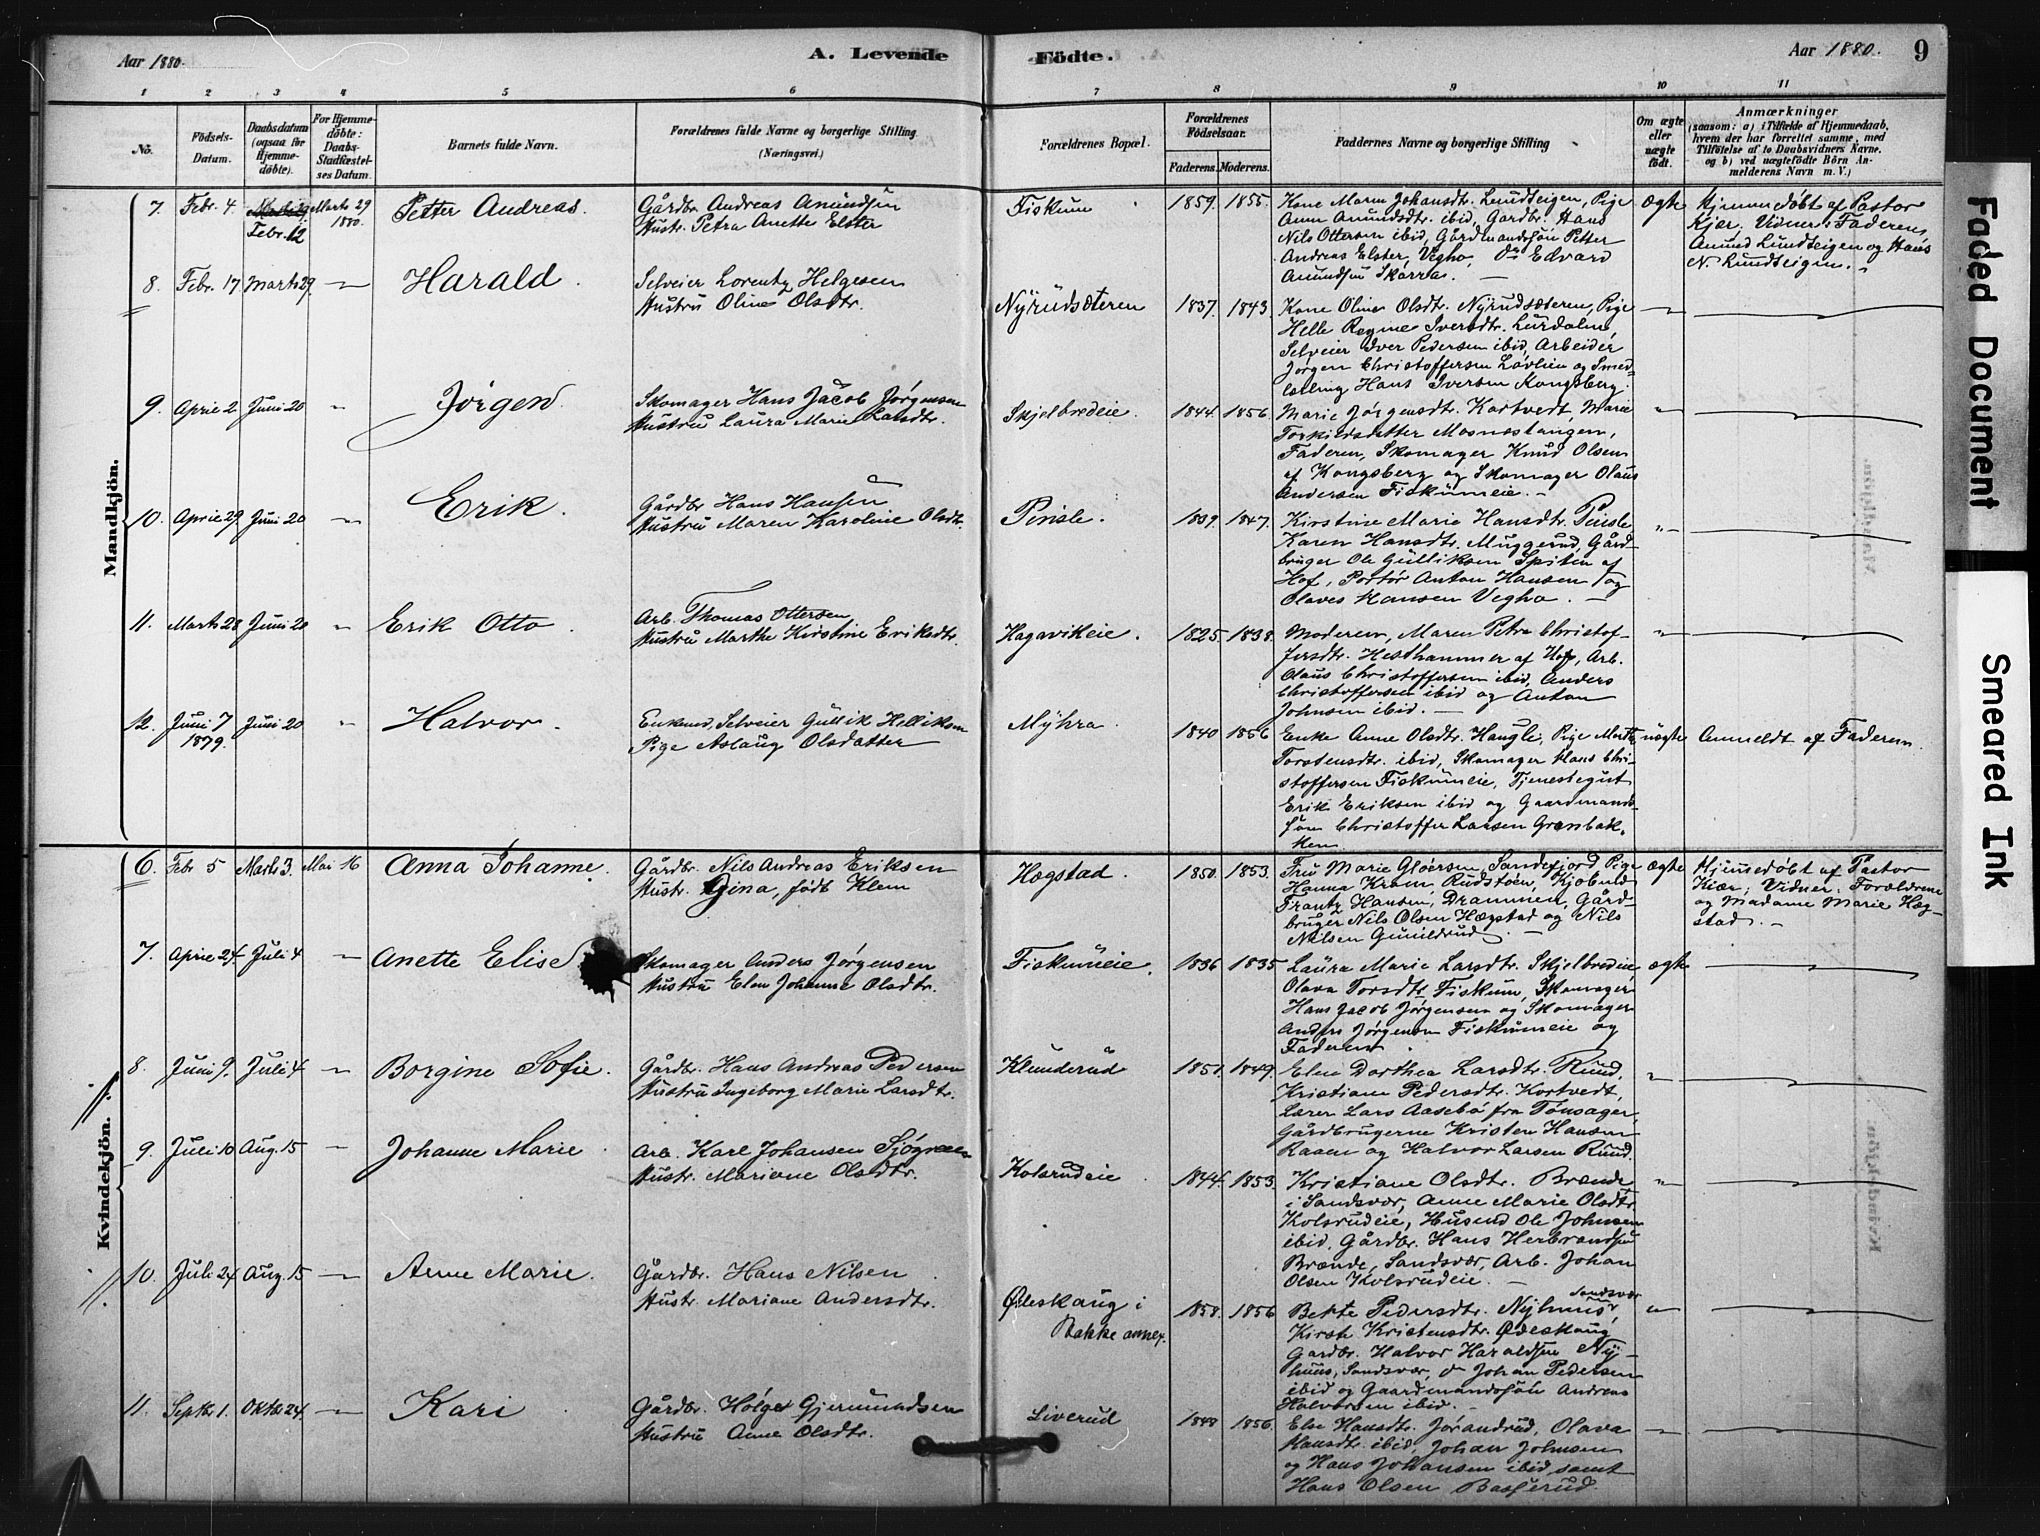 Aar 1880.
A. Levende Födte.
Aar 1880.
9
1 2 3 4 5 6 7 8 9 10 11
No.
Födsels-
Datum.
Daabsdatum
(ogsaa for
Hjemme-
döbte).
For Hjemme-
döbte:
Daabs-
Stadfæstel-
ses Datum.
Barnets fulde Navn.
Forældrenes fulde Navne og borgerlige Stilling.
(Næringsvei.)
Forældrenes Bopæl.
Forældrenes
Födselsaar.
Faderens. Moderens.
Faddernes Navne og borgerlige Stilling
Om ægte
eller
uægte
födt.
Anmærkninger
(saasom: a) i Tilfælde af Hjemmedaab,
hvem der har forrettet samme, med
Tilföielse af to Daabsvidners Navne.
og b) ved uægtefödte Börn An-
melderens Navn m. V.)
Mandkjön.
7. Febr. 4. Febr. 12 Marts 29 1880. Petter Andreas.
Gårdbr. Andreas Amundsen
Hustr. Petra Anette Elster
Fiskum 1859. 1855.
Kone Maren Johansdtr. Lundteigen, Pige
Anne Amundsdtr. ibid, Gårdbr. Hans
Nils Ottersen ibid, Gårdmandsøn Petter
Andreas Elster, Vegho, Do Edvard
Amundsen Skarra. —
Ægte
Hjemmedøbt af Pastor
Kjær. Vidner: Faderen,
Amund Lundteigen og Hans
N. Lundteigen.
8. Febr. 17. Marts 29. — Harald.
Selveier Lorentz Helgesen
Hustru Oline Olsdtr.
Nyrudsæteren 1837. 1843.
Kone Oline Olsdtr. Nyrudsæteren, Pige
Helle Regine Iversdtr. Lurdalen,
Selveier Iver Pedersen ibid, Arbeider
Jørgen Christoffersen Løvlien og Smed-
Hans Iversen Kongsberg.
9. April 2. Juni 20 " Jörgen.
Skomager Hans Jacob Jørgensen
Hustru Laura Marie Larsdtr.
Skjelbredeie. 1844. 1856.
Marie Jørgensdtr. Kortvedt, Marie
Torkildsdatter Mosnæstangen,
Faderen, Skomager Knud Olsen
af Kongsberg og Skomager Olaus
Andersen Fiskumeie. —
10. April 29. Juni 20 — Erik.
Gårdbr. Hans Hansen
Hustru Maren Karoline Olsdtr.
Pinsle. 1839. 1847.
Kirstine Marie Hansdtr. Pinsle
Karen Hansdtr. Muggerud, Gård-
bruger Ole Gulliksen Spiten af
Hof, Portør Anton Hansen og
Olaves Hansen Vegho. —
11. Marts 28 Juni 20 " Erik Otto.
Arb. Thomas Ottersen
Hustru Marthe Kirstine Eriksdtr.
Hagavikeie. 1825. 1838.
Moderen, Maren Petra Christof-
fersdtr. Hesthammer af Hof, Arb.
Olaus Christoffersen ibid, Anders
Christoffersen ibid og Anton
Johnsen ibid. —
12. Juni 7 1879. Juni 20 " Halvor.
Enkmd, Selveier Gullik Helliksen
Pige Aslaug Olsdatter
Myhra. 1840 1856
Enke Anne Olsdtr. Haugli, Pige Marthe
Torstensdtr. ibid, Skomager Hans Chri-
stoffersen Fiskumeie, Tjenestegut
Erik Eriksen ibid og Gaardmands-
søn Christoffer Larsen Grønbak-
ken.
uægte
Anmeldt af Faderen.
Kvindekjön.
6. Febr 5 Marts 3. Mai 16 Anna Johanne.
Gårdbr. Nils Andreas Eriksen
Hustr. Gina, født Klem
Hægstad. 1850. 1853.
Fru Marie Gløersen, Sandefjord, Pige
Hanna Krom, Rudstøen, Kjøbmd
Frantz Hansen, Drammen, Gård-
bruger Nils Olsen Hægstad og Nils
Nilsen Gunildrud. —
ægte
Hjemmedøbt af Pastor
Kiær; Vidner: Forældrene
og Madame Marie Hæg-
stad. —
7. April 24. Juli 4 — Anette Elise
Skomager Anders Jørgensen
Hustru Elen Johanne Olsdtr.
Fiskumeie. 1836 1835
Laura Marie Larsdtr. Skjelbredeie
Olava Torsdtr Fiskum, Skomager
Hans Jacob Jørgensen og Skomager
Anders Jørgensen Fiskumeie og
Faderen.
ægte
8. Juni 9. Juli 4 — Borgine Sofie.
Gårdbr. Hans Andreas Pedersen
Hustru Ingeborg Marie Larsdtr.
Klunderud 1851. 1849.
Elen Dorthea Larsdtr. Ruud,
Kristiane Pedersdtr. Kortvedt,
Lærer Lars Aasebø fra Tönsager,
Gårdbrugerne Kristen Hansen
Raaen og Halvor Larsen Ruud.
9. Juli 10 Aug. 15 — Johanne Marie.
Arb. Karl Johansen Sjögreen
Hustr. Mariane Olsdtr.
Kolsrudeie 1844. 1853.
Kristiane Olsdtr. Brænde
i Sandsvær, Anne Marie Olsdtr.
Kolsrudeie, Husmd Ole Johnsen
ibid, Gårdbr. Hans Herbrandsen
Brænde, Sandsvær, Arb. Johan
Olsen Kolsrudeie. —
10. Juli 24 Aug. 15 — Anne Marie.
Gårdbr. Hans Nilsen
Hustr. Mariane Andersdtr.
Ødeskaug i
Bakke annex. 1858. 1856
Berte Pedersdtr. Nyhuus, Sandsvær
Kirsti Kristensdtr. Ødeskaug
Gårdbr. Halvor Haraldsen Ny-
huus, Sandsvær, do Johan Pedersen
ibid og Gaardmandssøn Andreas
Halvorsen ibid. —
11. Septbr 1. Oktbr 24. — Kari
Gårdbr. Holger Gjermundsen
Hustru Anne Olsdtr.
Liverud 1848 1856.
Else Hansdtr. Jørandrud, Olava
Hansdtr. ibid, Johan Johnsen
og Hans Johansen ibid samt
Hans Olsen Basserud.
Faded Document
Smeared Ink